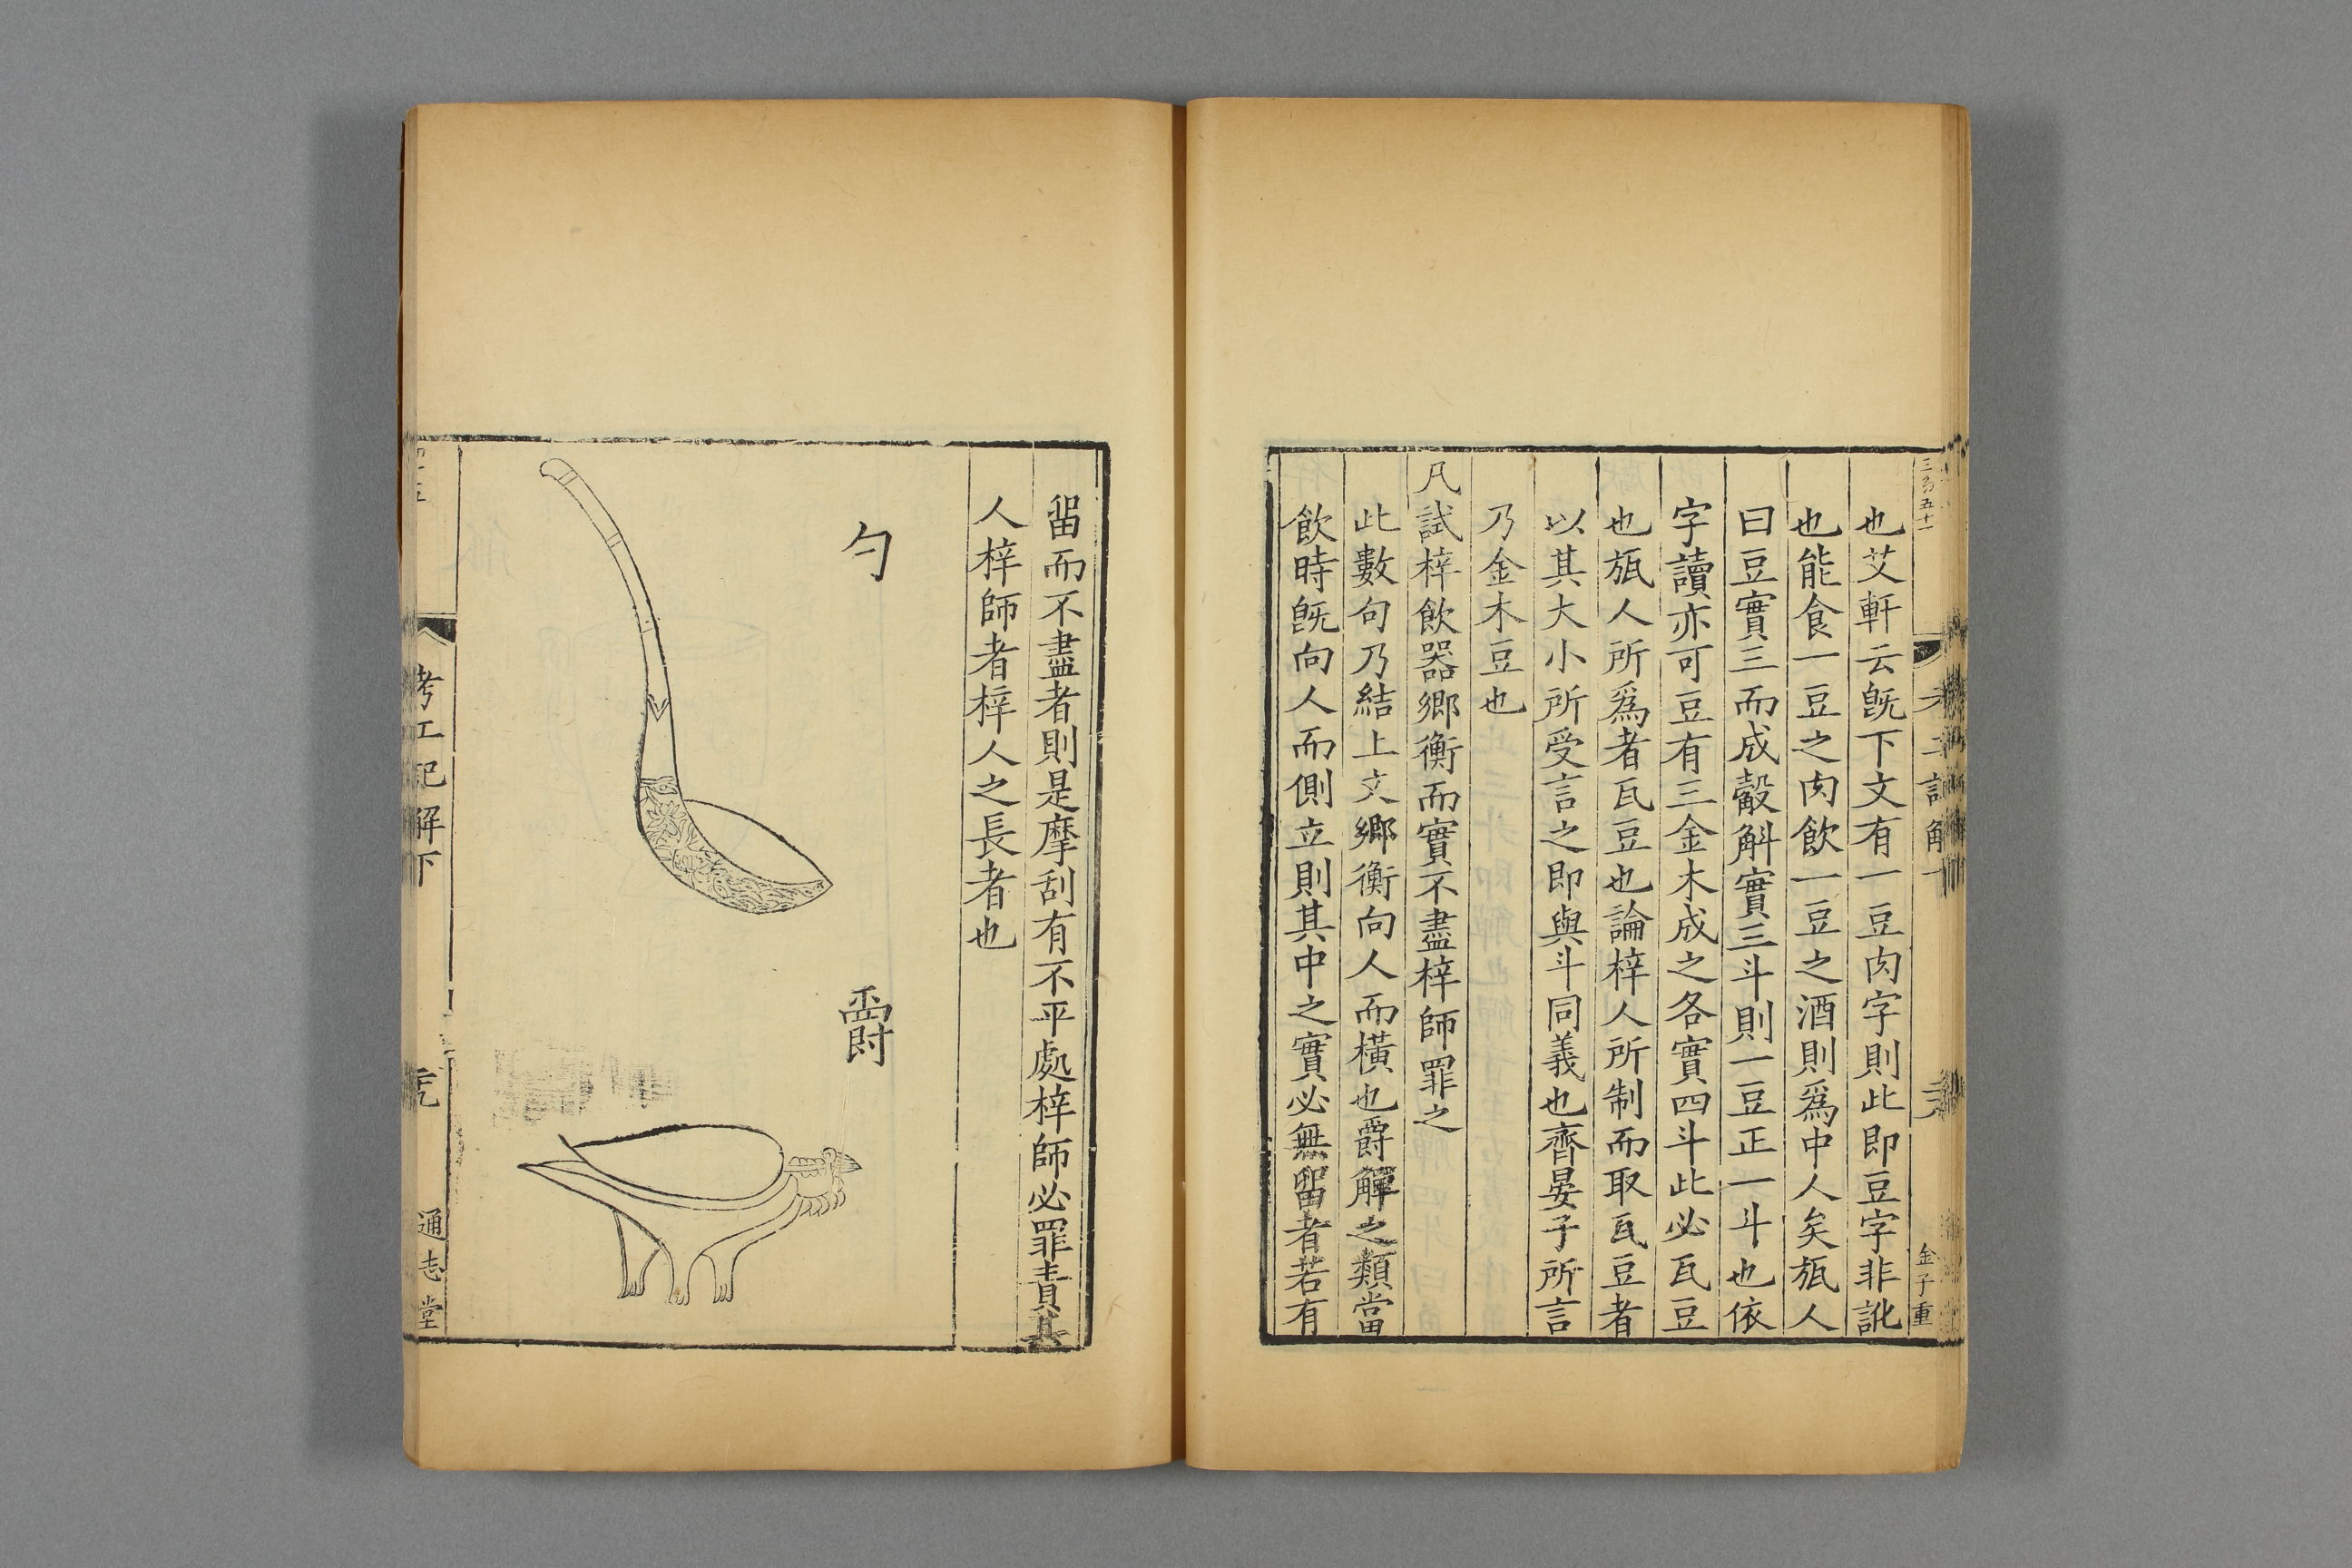 也艾軒云旣下文有一豆肉字則此即豆字非訛
也能食一豆之肉飲一豆之酒則爲中人矣瓬人
曰豆實三而成觳斛實三斗則一豆正一斗也依
字讀亦可豆有三金木成之各實四斗此必瓦豆
也瓬人所爲者瓦豆也論梓人所制而取瓦豆者
以其大小所受言之即與斗同義也齊晏子所言
乃金木豆也
凡試梓飲器鄉衡而實不盡梓師罪之
此數句乃結上文鄉衡向人而橫也爵觶之類當
飲時旣向人而側立則其中之實必無畱者若有
金子重
畱而不盡者則是摩刮有不平處梓師必罪責其
人梓師者梓人之長者也
勺
爵
考工記解下
通志堂